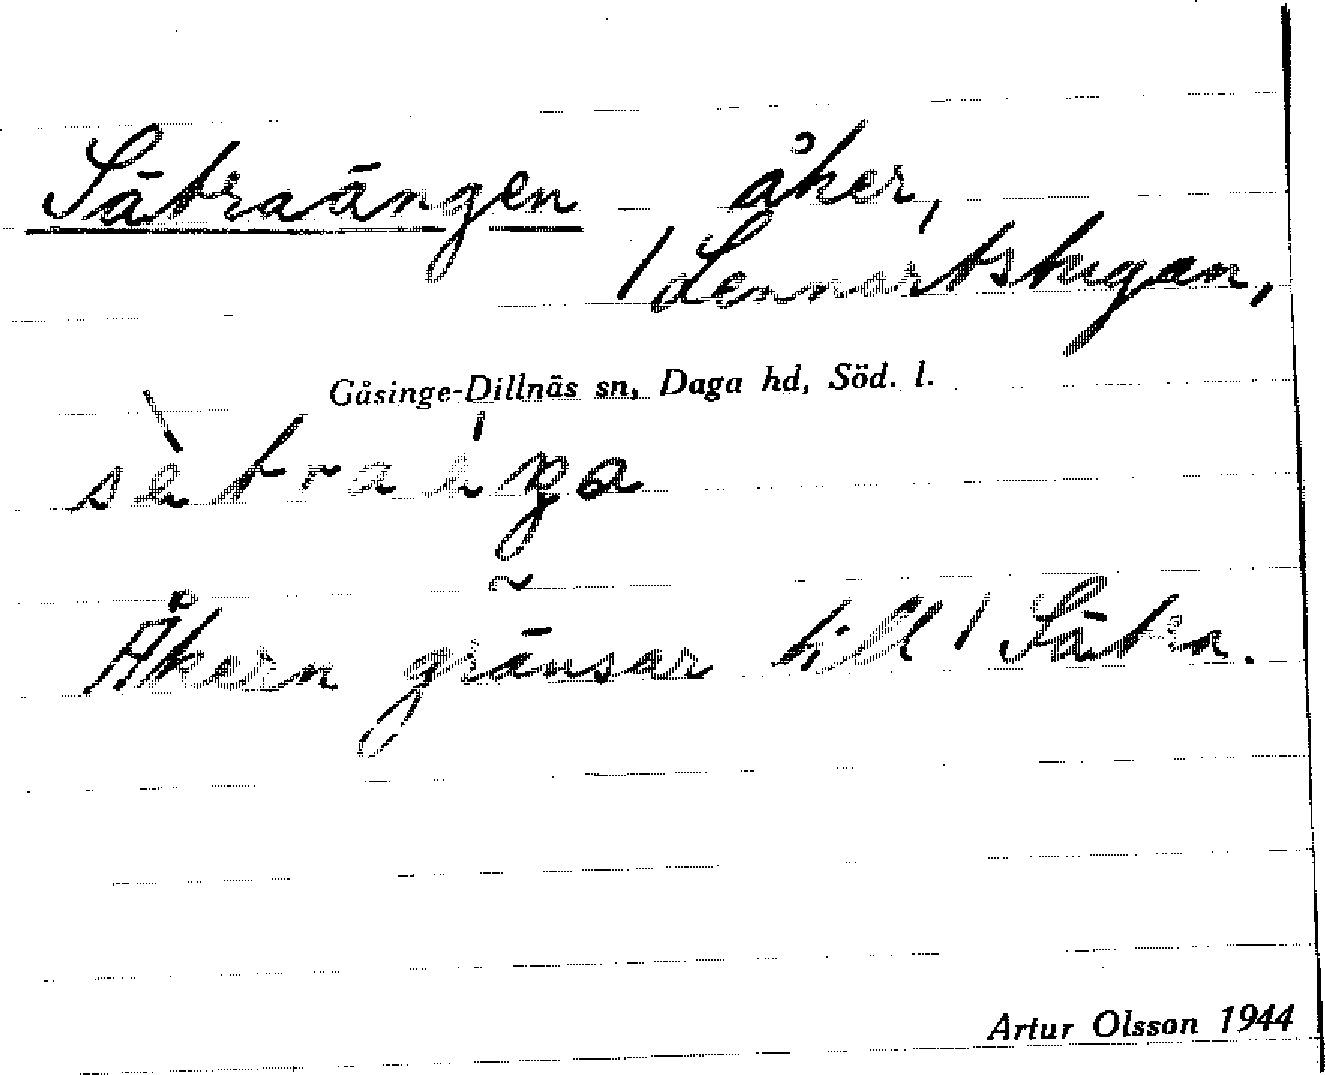 Sätraängen åker,
/Lennartstugan,
Gåsinge-Dillnäs sn, Daga hd, Söd. l.
Åkern gränsar till / Sätra.
Artur Olsson 1944